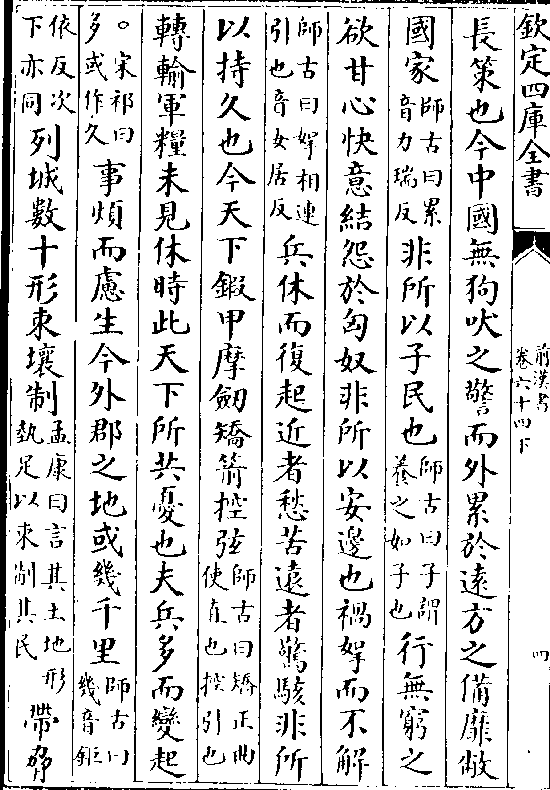 欽定四庫全書
前漢書
卷六十四下
四
長策也今中國無狗吠之警而外累於遠方之備靡敝
國家師古曰累音力瑞反非所以子民也師古曰子謂養之如子也行無窮之
欲甘心快意結怨於匈奴非所以安邊也禍挐而不解
師古曰挐相連引也音女居反兵休而復起近者愁苦逺者驚駭非所
以持久也今天下鍛甲摩劒矯箭控弦師古曰矯正曲使直也控引也
轉輸軍糧未見休時此天下所共憂也夫兵多而變起
○宋祁曰多或作久事煩而慮生今外郡之地或幾千里師古曰幾音鉅
依反次下亦同列城數十形束壤制孟康曰言其土地形埶足以束制其民帶脅